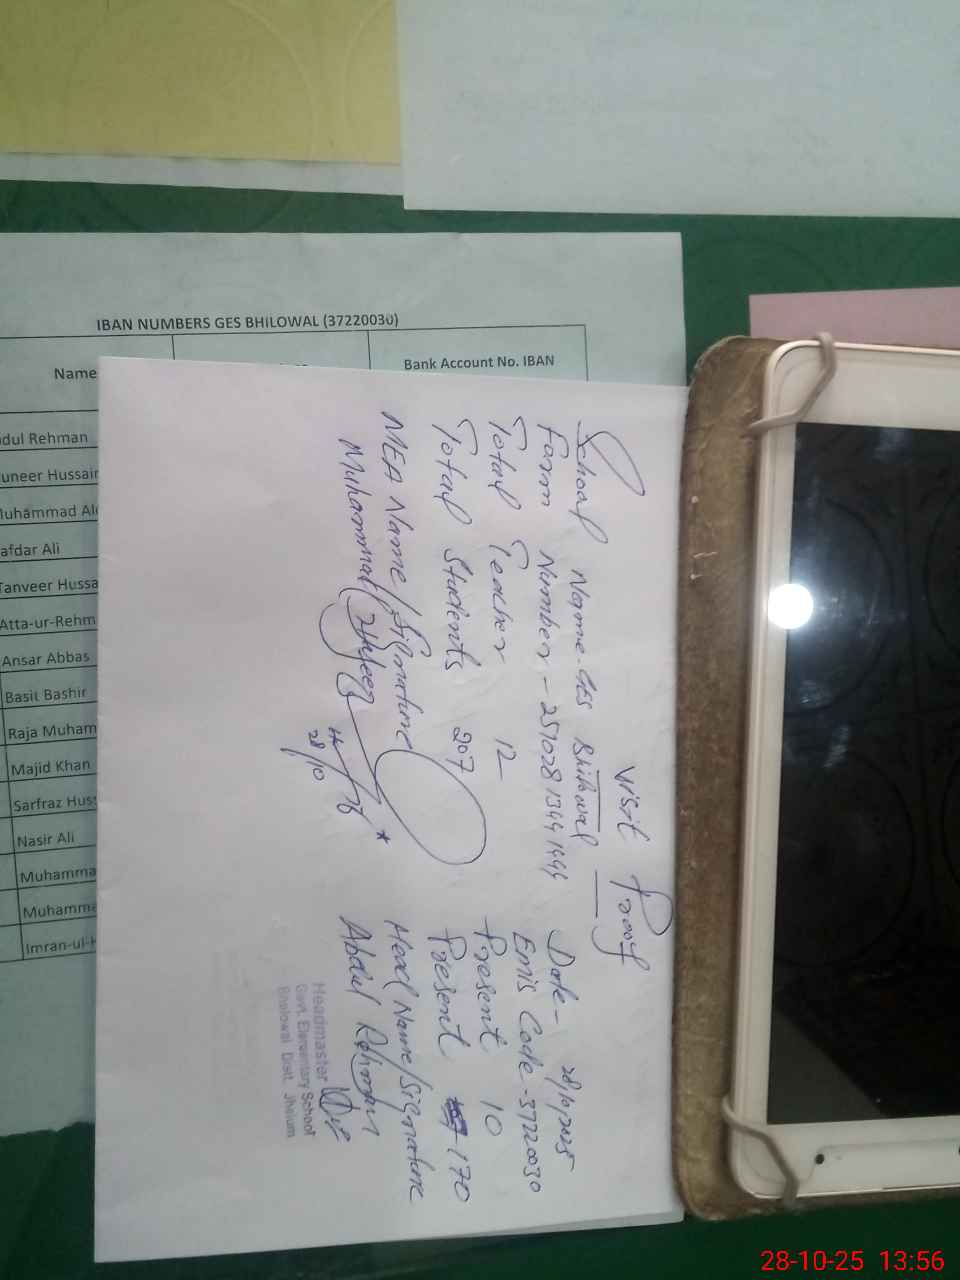 IBAN NUMBERS GES BHILOWAL (37220030)
Name
Bank Account No. IBAN
dul Rehman
uneer Hussain
Muhammad
afdar Ali
Tanveer Hussa
Atta-ur-Rehm
Ansar Abbas
Basit Bashir
Raja Muham
Majid Khan
Sarfraz Huss
Nasir Ali
Muhamma
Muhamme
Imran-ul-H
Visit Proof
School Name-GES Bhilowal Date- 28/10/2025
Farm Number-2510281344144 Emis Code-37220030
Total Teacher 12 Present 10
Total Students 207 Present 170
MEA Name/Signature Head Name/Signature
Muhammad Abdul Rehman
28/10
Headmaster
Govt. Elementary School
Bhelowal Distt. Jhelum
28-10-25 13:56